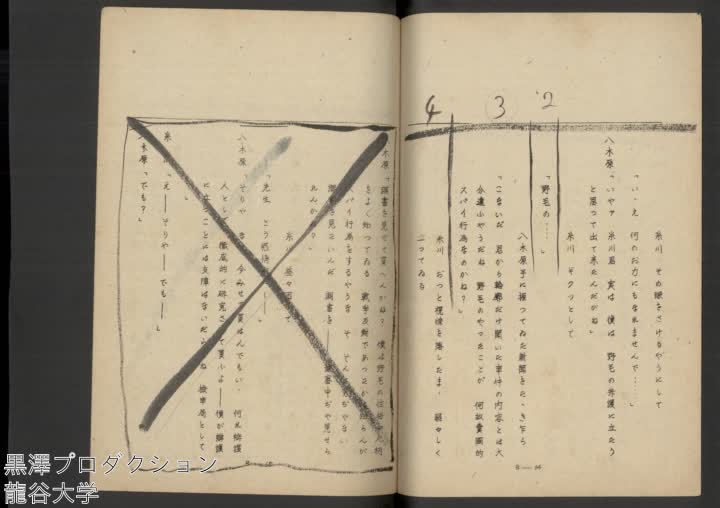 4 3 2
糸川 その眼をさけるやうにして
「いゝえ 何のお力にもなれませんで……」
八木原「いやァ 糸川君 実は 僕は 野毛の弁護に立たう
と思つて出て来たんだがね」
糸川 ギクッとして
「野毛の……」
八木原手に握つてゐた新聞をたゝき乍ら
「こないだ 君から輪郭だけ聞いた事件の内容とは大
分違ふやうだね 野毛のやったことが 何故売国的
スパイ行為なのかね?」
糸川 おっと視線を落したまゝ 軽々しく
八木原「調書を見せて貰へんかね? 僕は野毛の
をよく知つてゐる 戦争反対であつたかも知らんが
スパイ行為をするやうな そ そんな男ぢやない
調書を見たいんだ 調書を――
れんかね?」
糸川
「先生
八木原 そりや 今みせて貰はんでもいゝ 何れ弁護
人として 徹底的に研究させて貰ふよ――僕が弁護
に立つことには支障はないだらうね 検事局として
糸川「え――そりや――でも――」
八木原「でも?」
黒澤プロダクション
龍谷大学